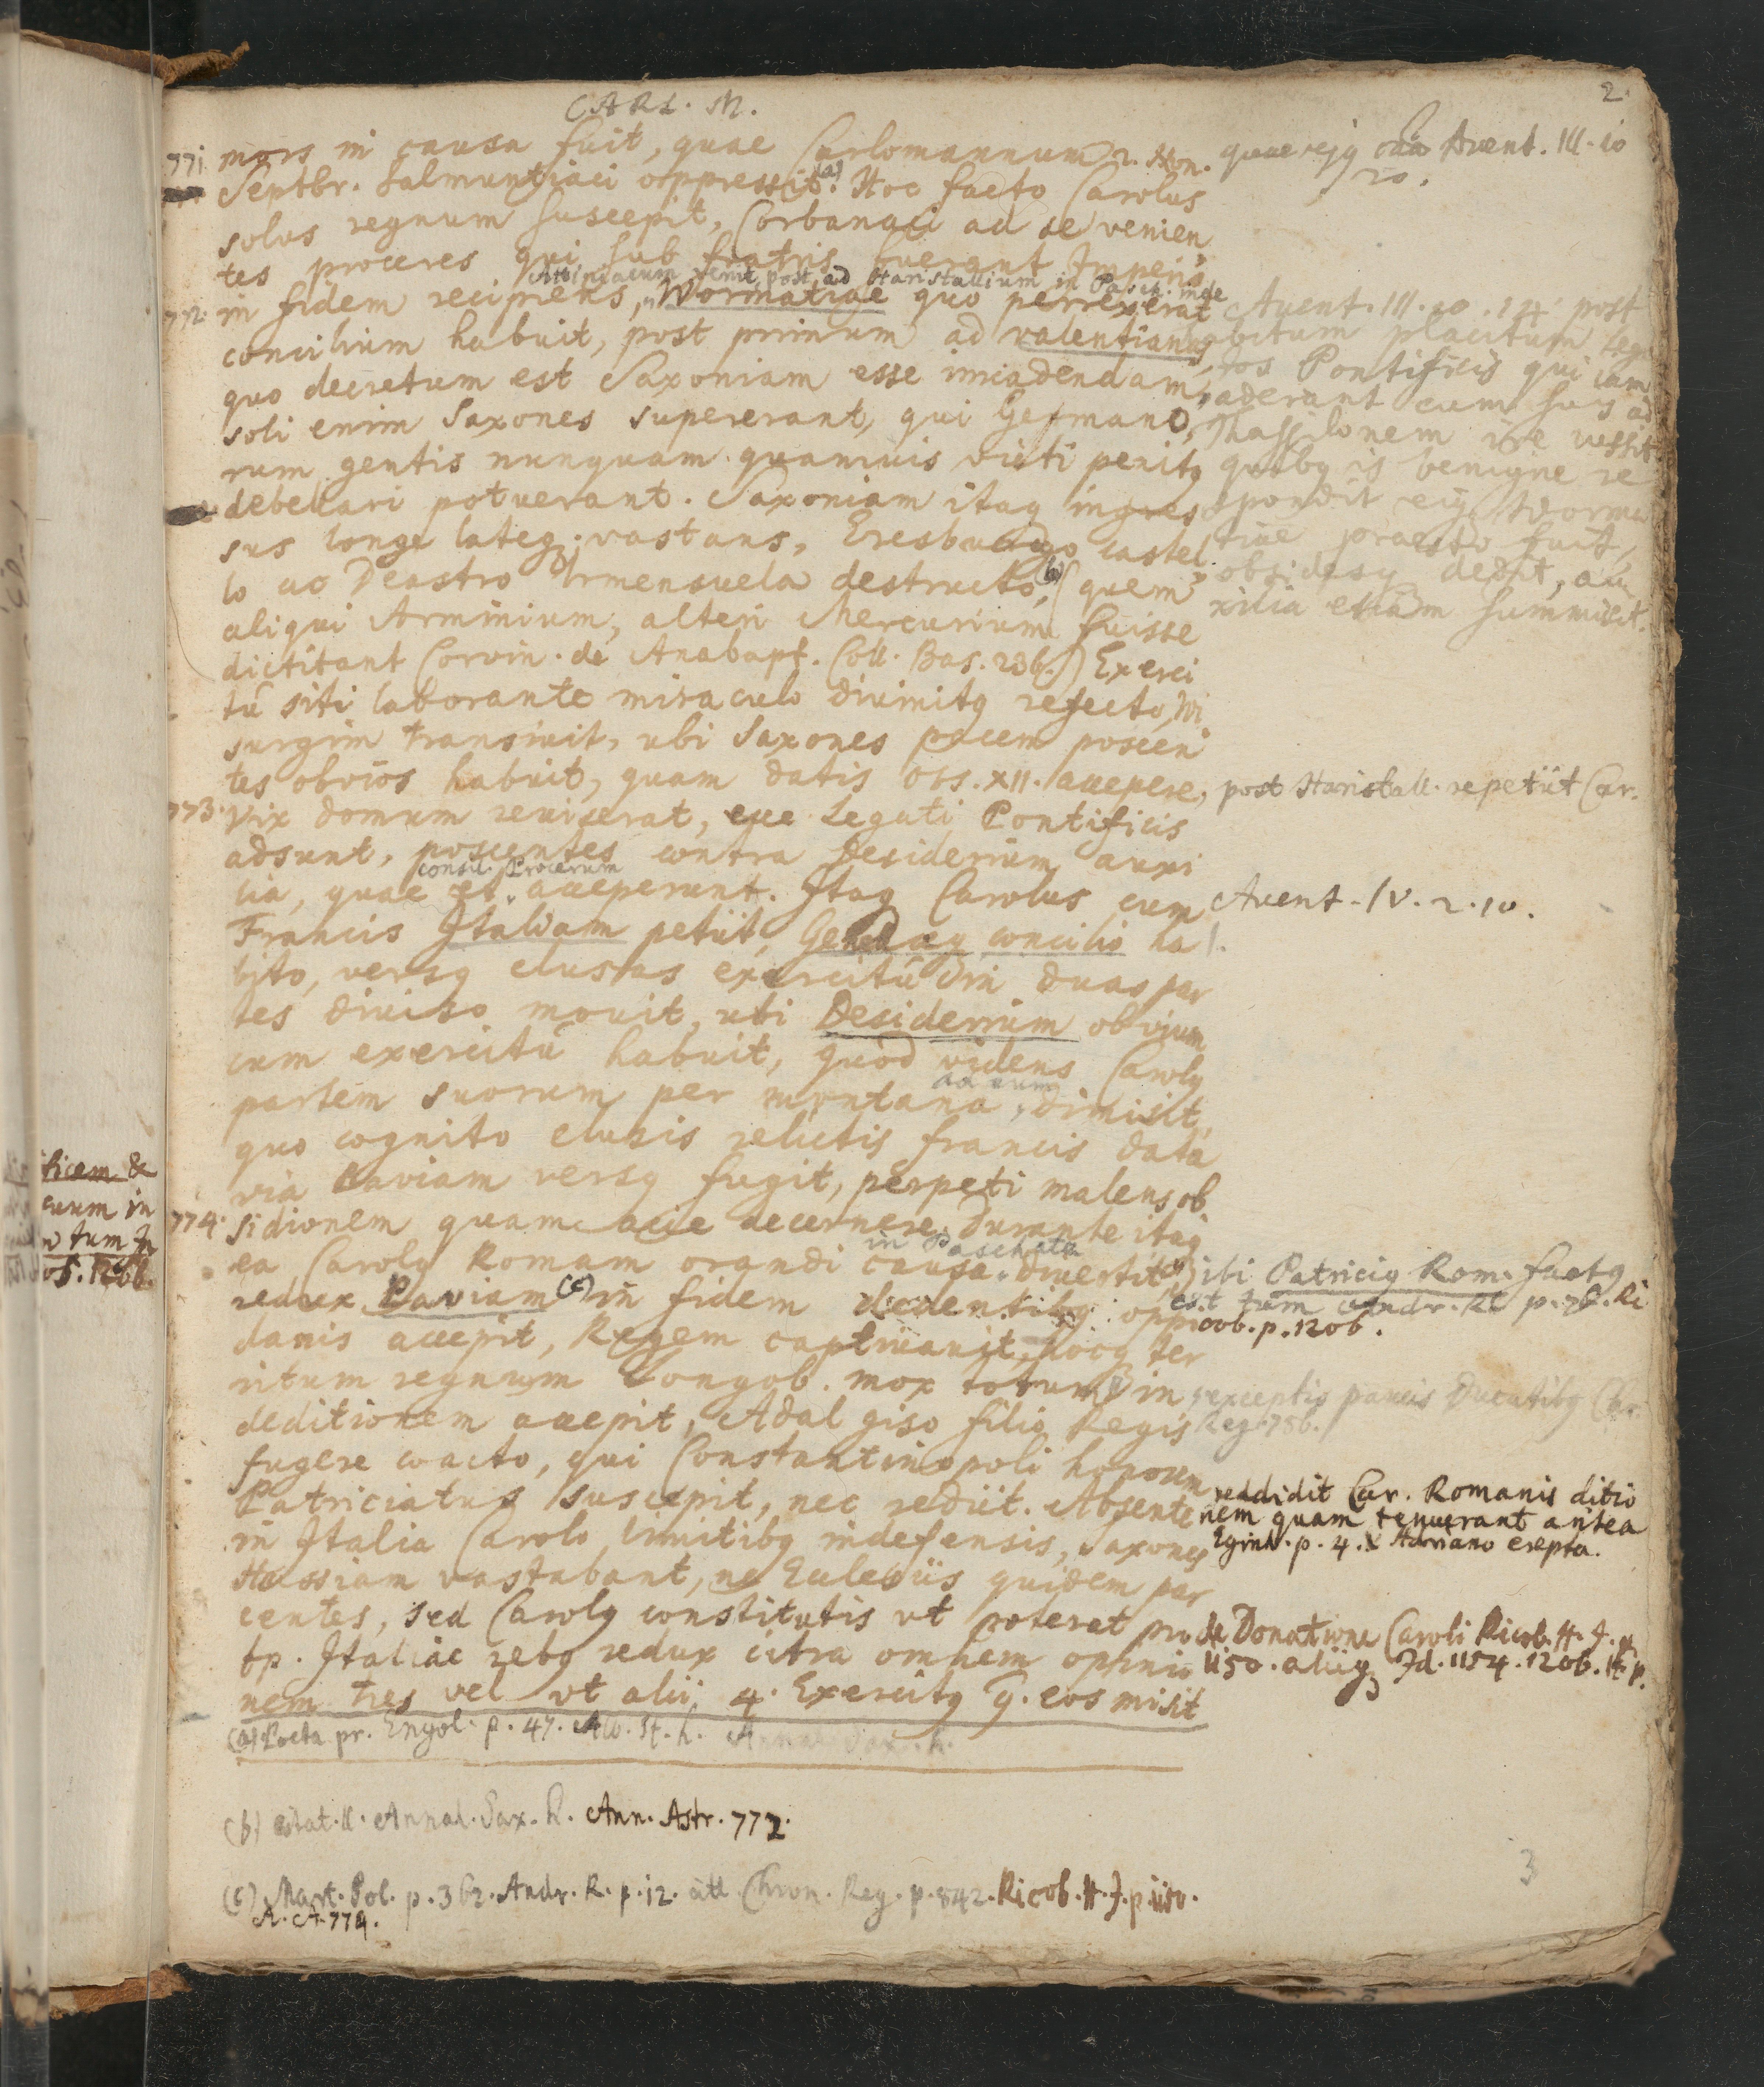 CARL. M.
2
771. mors in causa fuit, quae Carlomannum 2. Non.
Septbr. Salmuntiaci oppressit. (a) Hoc facto Carolus
solus regnum suscepit, Corbanaci ad se venien
tes proceres qui sub fratris fuerant Imperio
Attiniacum venit post ad Haristallium in Pasch. inde
772. in fidem recipiens, Wormatiae quo perrexerat
concilium habuit, post primum ad valentianas
quo decretum est Saxoniam esse invadendam,
soli enim Saxones supererant, qui Germano,
rum gentis nunquam quamvis victi penitq
debellari potuerant. Saxoniam itaq ingres
sus longe lateq vastans, Eresburgo castel
lo ac Deastro Irmensuela destructo, (b) (quem
aliqui Arminium, alteri Mercurium fuisse
dictitant Corvin. de Anabapt. Coll. Bas. 236.) Exerci
tu siti laborante miraculo divinitq refecto, Wi
surgim transivit, ubi Saxones pacem poscen
tes obvios habuit, quam datis obs. XII. accepere,
773. Vix domum reviserat, ecce Legati Pontificis
adsunt, poscentes contra Desiderium auxi
consil. Procerum
lia, quae et acceperunt. Itaq Carolus cum
Francis Italiam petiit, Genevaeq concilio ha
bito, versq clusas exercitu in duas par
tes diviso movit, ubi Desiderium obvium
cum exercitu habuit, quod videns Carolq
partem suorum per montana dimisit,
quo cognito clusis relictis francis data
via Paviam versq fugit, perpeti malens ob
774. sidionem quam acie decernere. Durante itaq
in Paschate
ea Carolq Romam orandi causa divertit,
redux Paviam (c) in fidem dedentibq oppi
danis accepit, Regem captivavit, hocq ter
ritum regnum Longob. mox totum in
deditionem accepit, Adalgiso filio Regis
fugere coacto, qui Constantinopoli honorem
Patriciatus suscepit, nec rediit. Absente
in Italia Carolo, limitibq indefensis, Saxones
Hassiam vastabant, ne Ecclesiis quidem par
centes, sed Carolq constitutis ut poterat pro
tp. Italiae rebq redux citra omnem opinio
nem tres vel ut alii 4. Exercitq q. eos misit
(a) Poeta pr. Engol. p. 47.
(b) Annal. Sax. h. Ann. Astr. 772.
(c) Mart. Pol. p. 362. Andr. R. p. 12. Chron. Reg. p. 842. Ricob. H. I. p. 1150.
A. A. 774.
Avent. III. 10
20.
Avent. III. 10. 14. post
obitum placitum Lega
tos Pontificis qui iam
aderant cum suis ad
Thassilonem ire iussit
quibq is benigne re
spondit
tiae praesto fuit,
obsidesq dedit, au
xilia etiam summisit.
post Haristall. repetiit Car.
Avent. IV. 2. 10.
ibi Patriciq Rom. factq
est tum Andr. R. p. 78. Ri
cob. p. 1206.
exceptis paucis Ducatibq Chr.
Reg. 756.
reddidit Car. Romanis ditio
nem quam tenuerant antea
Eginh. p. 4. & Hadriano erepta.
de Donatione Caroli Ricob. H. I. p.
1150. aliiq Id. 1154. 1206.
3
ticem &
cuum in
tum
1206.